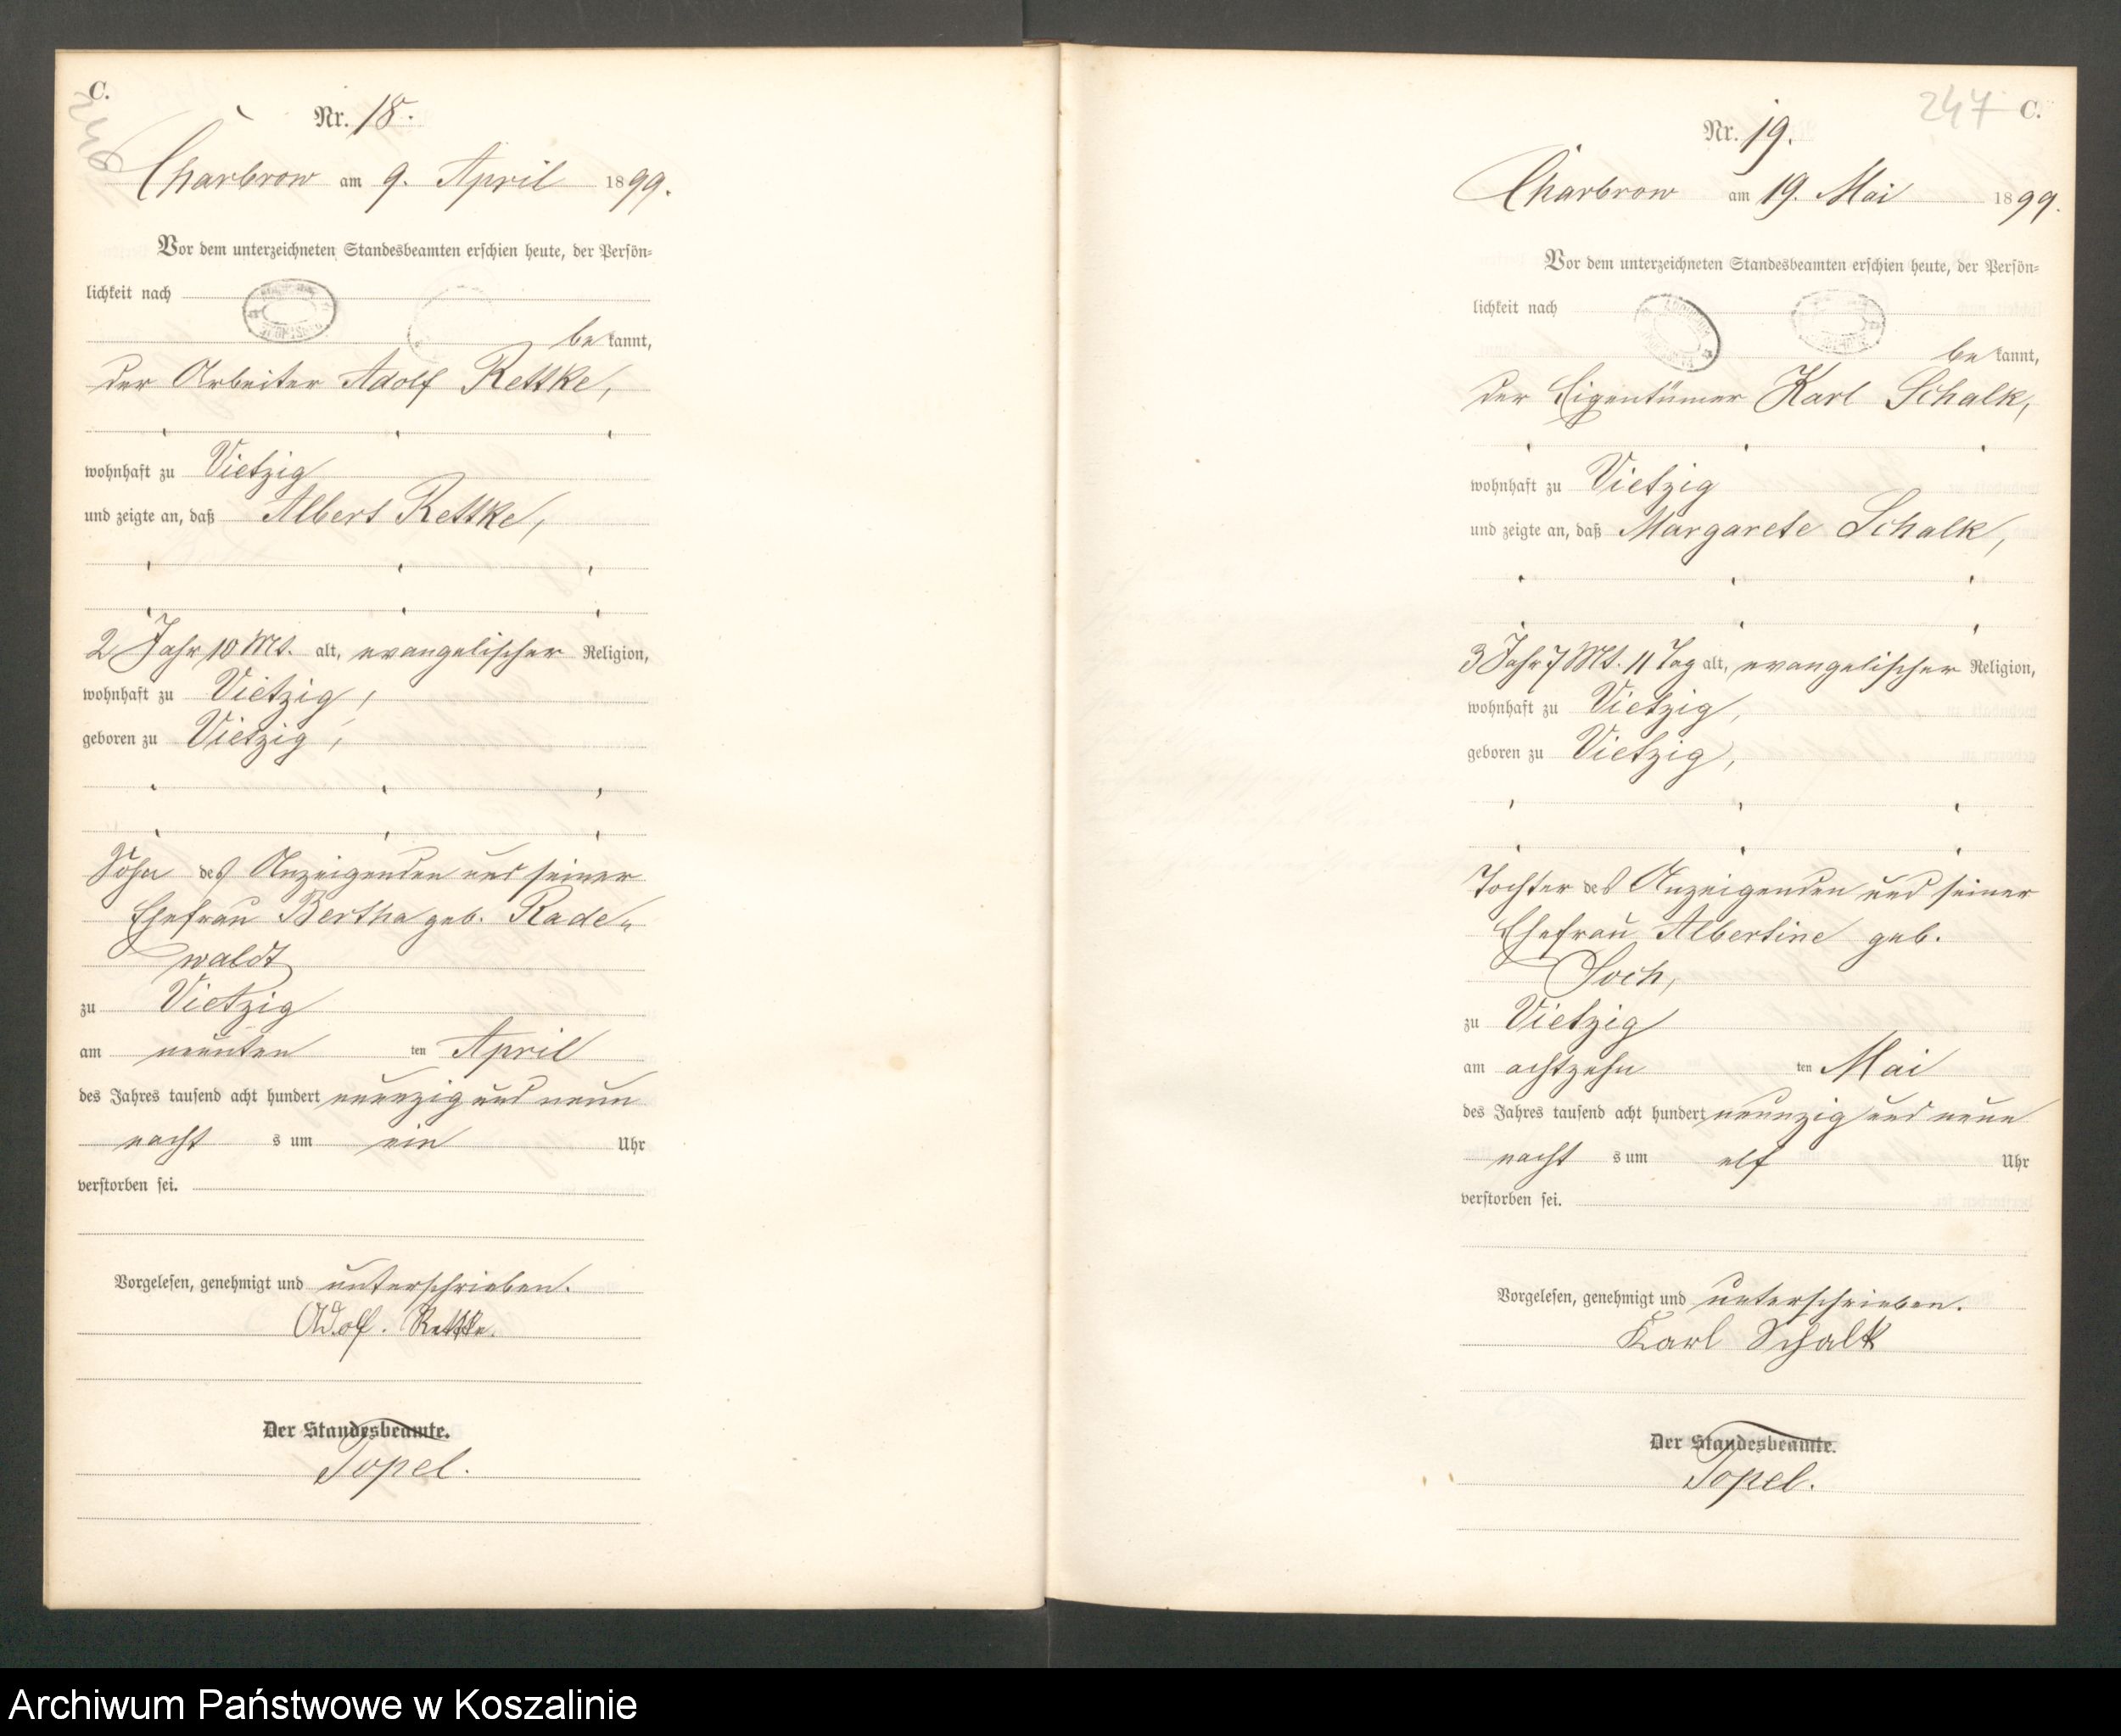 C.
Nr. 18.
Charbrow am 9. April 1899.
Vor dem unterzeichneten Standesbeamten erschien heute, der Persön-
lichkeit nach
be kannt,
der Arbeiter Adolf Rettke,
wohnhaft zu Vietzig
und zeigte an, daß Albert Rettke,
2 Jahr 10 Mt. alt, evangelischer Religion,
wohnhaft zu Vietzig,
geboren zu Vietzig,
Sohn des Anzeigenden und seiner
Ehefrau Bertha geb. Rade-
waldt
zu Vietzig
am neunten ten April
des Jahres tausend acht hundert neunzig und neun
nacht s um ein Uhr
verstorben sei.
Vorgelesen, genehmigt und unterschrieben.
Adolf. Rettke.
Der Standesbeamte.
Topel.
247 C.
Nr. 19.
Charbrow am 19. Mai 1899.
Vor dem unterzeichneten Standesbeamten erschien heute, der Persön-
lichkeit nach
be kannt,
der Eigentümer Karl Schalk,
wohnhaft zu Vietzig
und zeigte an, daß Margarete Schalk,
3 Jahr 7 Mt. 11 Tag alt, evangelischer Religion,
wohnhaft zu Vietzig,
geboren zu Vietzig,
Tochter des Anzeigenden und seiner
Ehefrau Albertine geb.
Soch,
zu Vietzig
am achtzehn ten Mai
des Jahres tausend acht hundert neunzig und neun
nacht s um elf Uhr
verstorben sei.
Vorgelesen, genehmigt und unterschrieben.
Karl Schalk
Der Standesbeamte.
Topel.
Archiwum Państwowe w Koszalinie